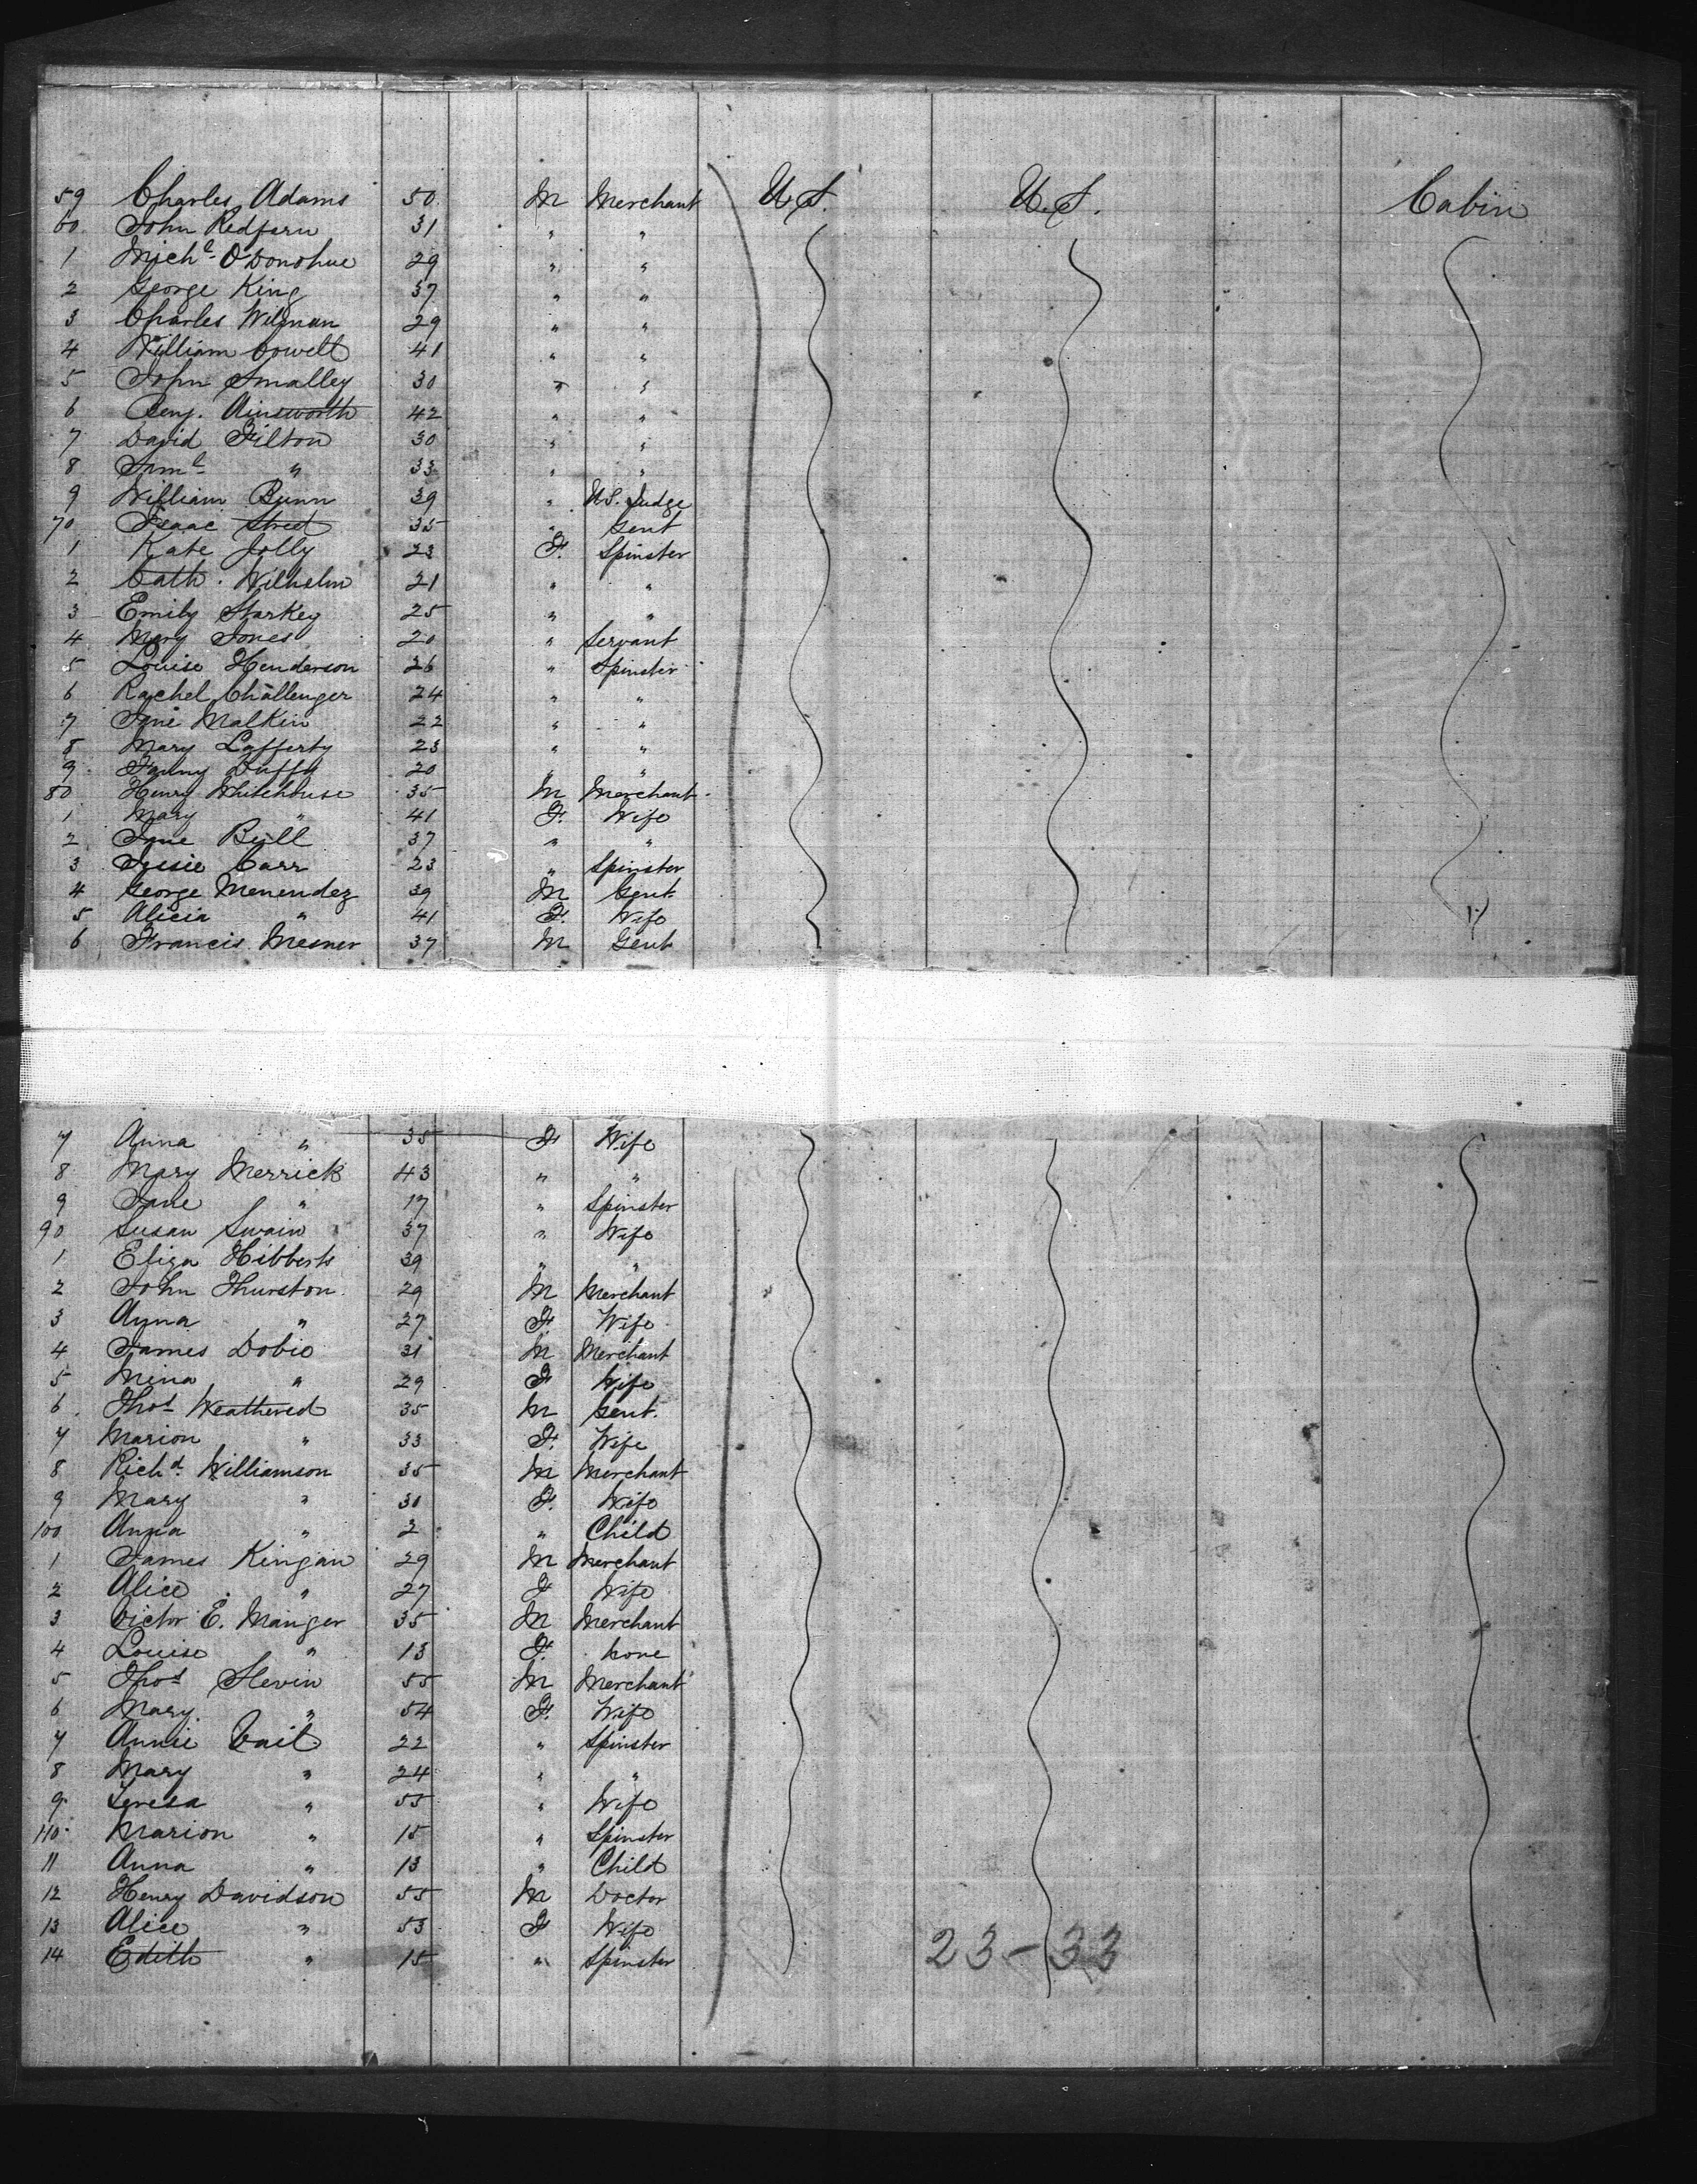 59 Charles Adams 50 M Merchant U.S. U.S. Cabin
60 John Redfern 31 " "
1 Michl O'Donohue 29 " "
2 George King 37 " "
3 Charles Wilman 29 " "
4 William Cowell 41 " "
5 John Smalley 30 " "
6 Benj. Ainsworth 42 " "
7 David Tilton 30 " "
8 Saml " 33 " "
9 William Bunn 39 " U.S. Judge
70 Isaac Street 35 " Gent
1 Kate Jolly 23 F. Spinster
2 Cath. Wilhelm 21 " "
3 Emily Starkey 25 " "
4 Mary Jones 20 " Servant
5 Louise Henderson 26 " Spinster
6 Rachel Challenger 24 " "
7 Jane Malkin 22 " "
8 Mary Lafferty 23 " "
9 Fanny Duffy 20 " "
80 Henry Whitehouse 35 M Merchant
1 Mary " 41 F. Wife
2 Jane Bull 37 " "
3 Jessie Carr 23 " Spinster
4 George Menendez 39 M Gent.
5 Alicia " 41 F. Wife
6 Francis Mesner 37 M Gent
7 Anna " 35 F Wife
8 Mary Merrick 43 " "
9 Jane " 17 " Spinster
90 Susan Swain 37 " Wife
1 Eliza Hibberts 39 " "
2 John Thurston 29 M Merchant
3 Anna " 27 F. Wife
4 James Dobie 31 M Merchant
5 Mina " 29 F Wife
6 Thos Weathered 35 M Gent.
7 Marion " 33 F. Wife
8 Richd Williamson 35 M Merchant
9 Mary " 30 F. Wife
100 Anna " 2 " Child
1 James Kingan 29 M Merchant
2 Alice " 27 F Wife
3 Victor E. Manger 35 M Merchant
4 Louise " 13 F. none
5 Thos Slevin 55 M Merchant
6 Mary " 54 F. Wife
7 Annie Vail 22 " Spinster
8 Mary " 24 " "
9 Teresa " 55 " Wife
110 Marion " 15 " Spinster
11 Anna " 13 " Child
12 Henry Davidson 55 M Doctor
13 Alice " 53 F Wife
14 Edith " 15 " Spinster
23-33